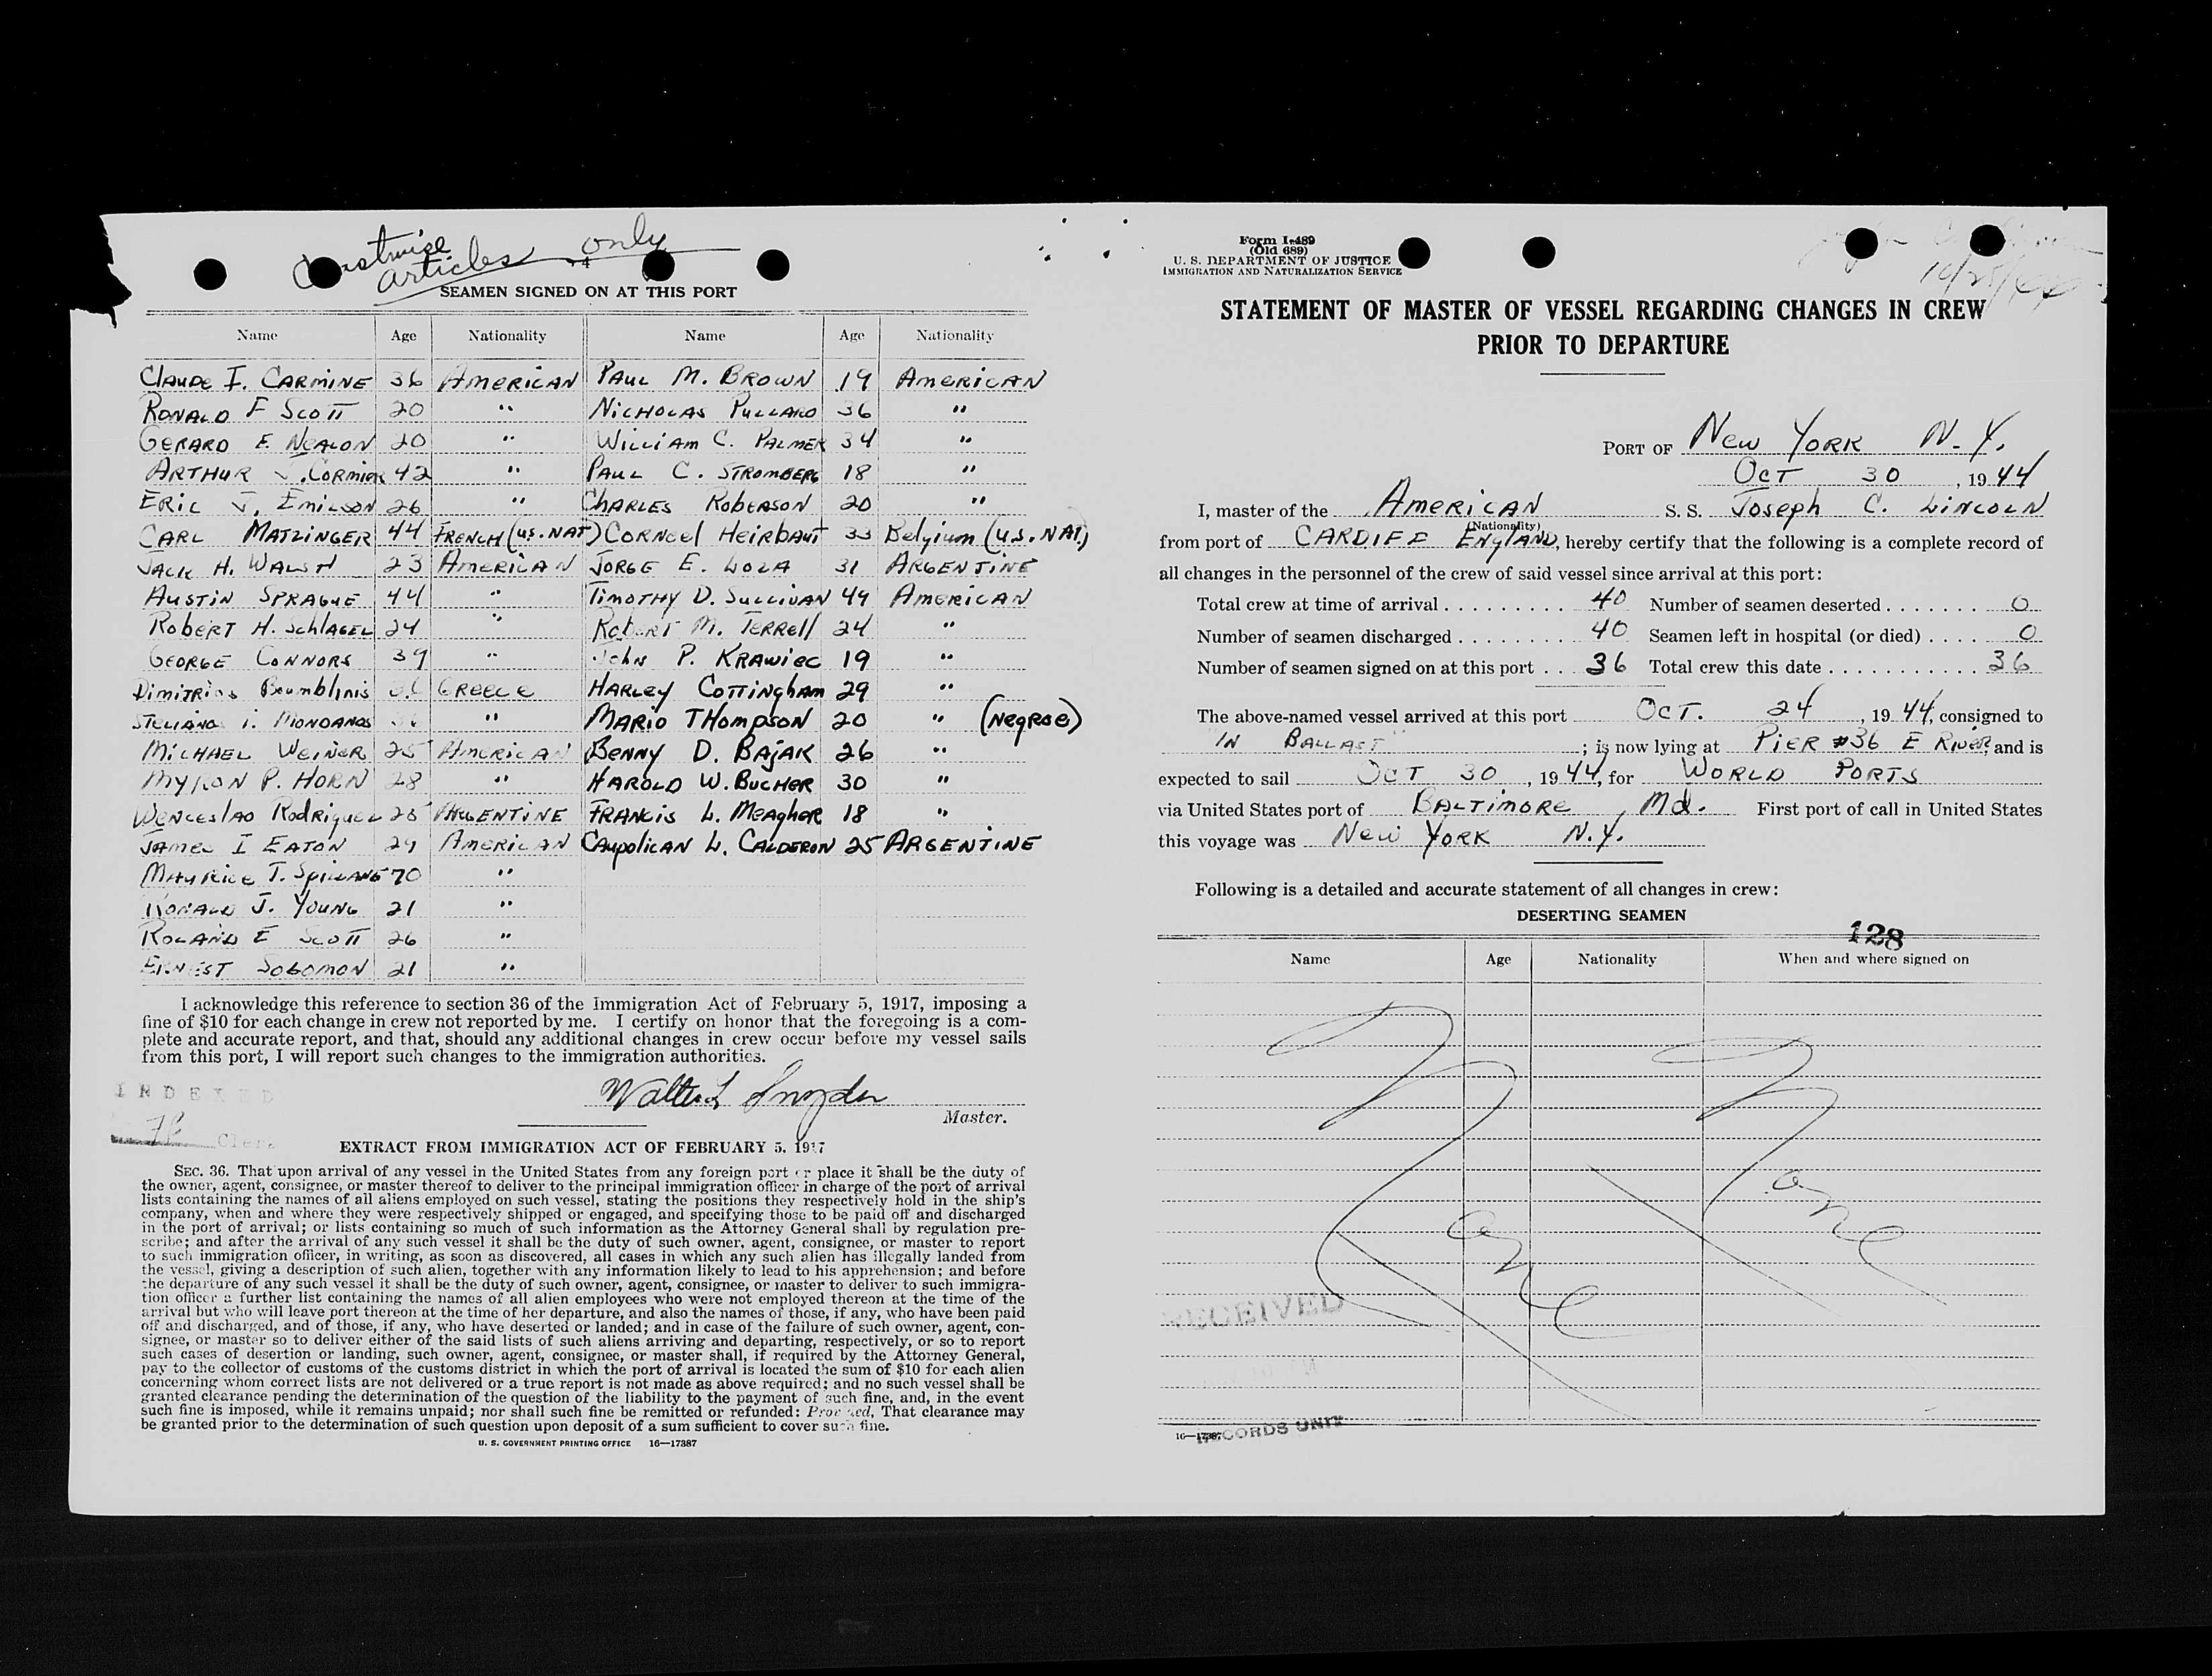 Coastwise
Articles only
4
SEAMEN SIGNED ON AT THIS PORT
Name Age Nationality Name Age Nationality
CLAUDE I. CARMINE 36 AMERICAN PAUL M. BROWN 19 AMERICAN
RONALD F SCOTT 20 " NICHOLAS PULLARO 36 "
GERARD F. NEALON 20 " WILLIAM C. PALMER 34 "
ARTHUR J. CORMIER 42 " PAUL C. STROMBERG 18 "
ERIC J. EMILSON 26 " CHARLES ROBERSON 20 "
CARL MATZINGER 44 FRENCH (U.S. NAT) CORNEEL HEIRBAUT 33 Belgium (U.S. NAT)
JACK H. WALSH 23 AMERICAN JORGE E. LOZA 31 ARGENTINE
AUSTIN SPRAGUE 44 " TIMOTHY D. SULLIVAN 49 AMERICAN
ROBERT H. SCHLAGEL 24 " Robert M. TERRELL 24 "
GEORGE CONNORS 39 " John P. KRAWIEC 19 "
Dimitrios Boumblinis GREECE HARLEY COTTINGHAM 29 "
STELIANOS I. MONDANOS " MARIO THOMPSON 20 " (NEGROE)
MICHAEL WEINER 25 AMERICAN BENNY D. BAJAK 26 "
MYRON P. HORN 28 " HAROLD W. BUCHER 30 "
WENCESLAO RODRIGUEZ 25 ARGENTINE FRANCIS L. MEAGHER 18 "
JAMES I EATON 29 AMERICAN CAUPOLICAN L. CALDERON 25 ARGENTINE
MAURICE T. SPILLANE 70 "
RONALD J. YOUNG 21 "
ROLAND E SCOTT 26 "
ERNEST SOLOMON 21 "
I acknowledge this reference to section 36 of the Immigration Act of February 5, 1917, imposing a
fine of $10 for each change in crew not reported by me. I certify on honor that the foregoing is a com-
plete and accurate report, and that, should any additional changes in crew occur before my vessel sails
from this port, I will report such changes to the immigration authorities.
INDEXED
Walter L Snyder
Master.
Clerk
EXTRACT FROM IMMIGRATION ACT OF FEBRUARY 5, 1917
SEC. 36. That upon arrival of any vessel in the United States from any foreign port or place it shall be the duty of
the owner, agent, consignee, or master thereof to deliver to the principal immigration officer in charge of the port of arrival
lists containing the names of all aliens employed on such vessel, stating the positions they respectively hold in the ship's
company, when and where they were respectively shipped or engaged, and specifying those to be paid off and discharged
in the port of arrival; or lists containing so much of such information as the Attorney General shall by regulation pre-
scribe; and after the arrival of any such vessel it shall be the duty of such owner, agent, consignee, or master to report
to such immigration officer, in writing, as soon as discovered, all cases in which any such alien has illegally landed from
the vessel, giving a description of such alien, together with any information likely to lead to his apprehension; and before
the departure of any such vessel it shall be the duty of such owner, agent, consignee, or master to deliver to such immigra-
tion officer a further list containing the names of all alien employees who were not employed thereon at the time of the
arrival but who will leave port thereon at the time of her departure, and also the names of those, if any, who have been paid
off and discharged, and of those, if any, who have deserted or landed; and in case of the failure of such owner, agent, con-
signee, or master so to deliver either of the said lists of such aliens arriving and departing, respectively, or so to report
such cases of desertion or landing, such owner, agent, consignee, or master shall, if required by the Attorney General,
pay to the collector of customs of the customs district in which the port of arrival is located the sum of $10 for each alien
concerning whom correct lists are not delivered or a true report is not made as above required; and no such vessel shall be
granted clearance pending the determination of the question of the liability to the payment of such fine, and, in the event
such fine is imposed, while it remains unpaid; nor shall such fine be remitted or refunded: Provided, That clearance may
be granted prior to the determination of such question upon deposit of a sum sufficient to cover such fine.
U. S. GOVERNMENT PRINTING OFFICE 16—17387
Form I-489
(Old 689)
U. S. DEPARTMENT OF JUSTICE
IMMIGRATION AND NATURALIZATION SERVICE
STATEMENT OF MASTER OF VESSEL REGARDING CHANGES IN CREW
PRIOR TO DEPARTURE
PORT OF New YORK N.Y.
OCT 30, 1944
I, master of the AMERICAN S. S. Joseph C. LINCOLN
(Nationality)
from port of CARDIFF ENGLAND, hereby certify that the following is a complete record of
all changes in the personnel of the crew of said vessel since arrival at this port:
Total crew at time of arrival 40 Number of seamen deserted 0
Number of seamen discharged 40 Seamen left in hospital (or died) 0
Number of seamen signed on at this port 36 Total crew this date 36
The above-named vessel arrived at this port OCT. 24, 1944, consigned to
"IN BALLAST"; is now lying at PIER #36 E RIVER and is
expected to sail OCT 30, 1944, for WORLD PORTS
via United States port of BALTIMORE, Md. First port of call in United States
this voyage was New YORK N.Y.
Following is a detailed and accurate statement of all changes in crew:
DESERTING SEAMEN
128
Name Age Nationality When and where signed on
None None
RECEIVED
RECORDS UNIT
16—17387